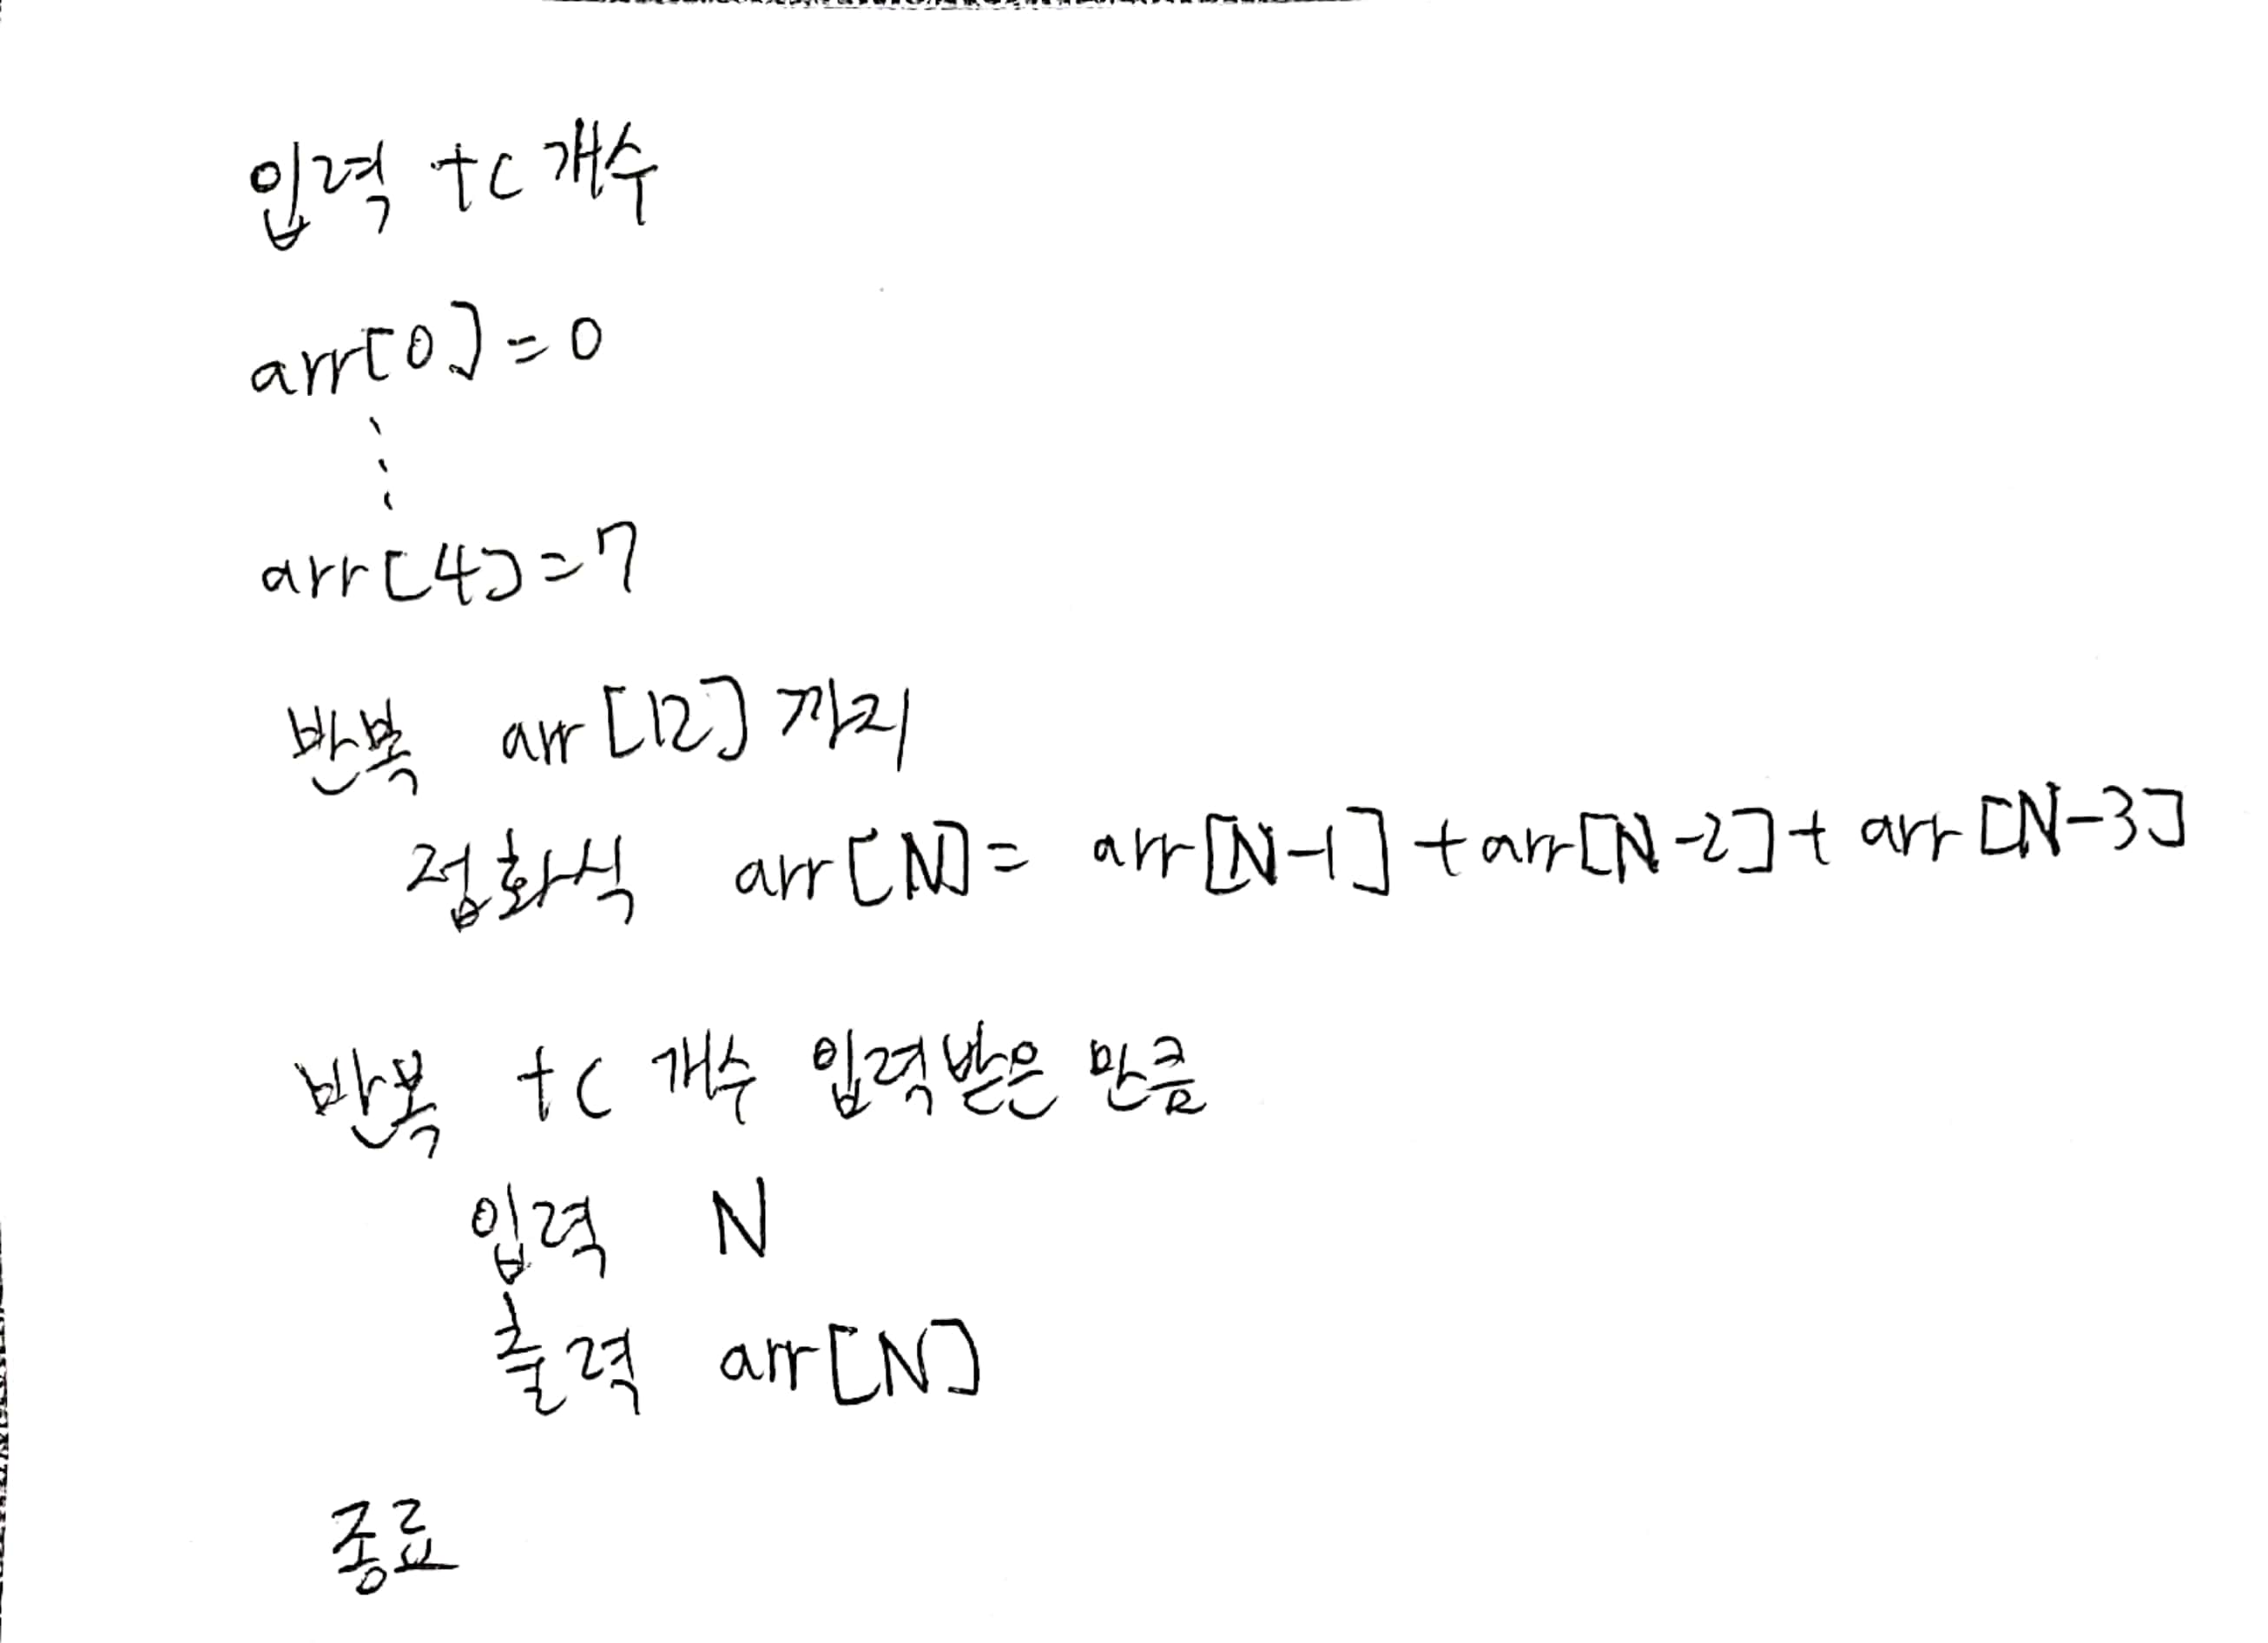 입력 tc 개수
arr[0]=0
⋮
arr[4]=7
반복 arr[12] 까지
점화식 arr[N]= arr[N-1]+arr[N-2]+arr[N-3]
반복 tc 개수 입력받은 만큼
입력 N
출력 arr[N]
종료